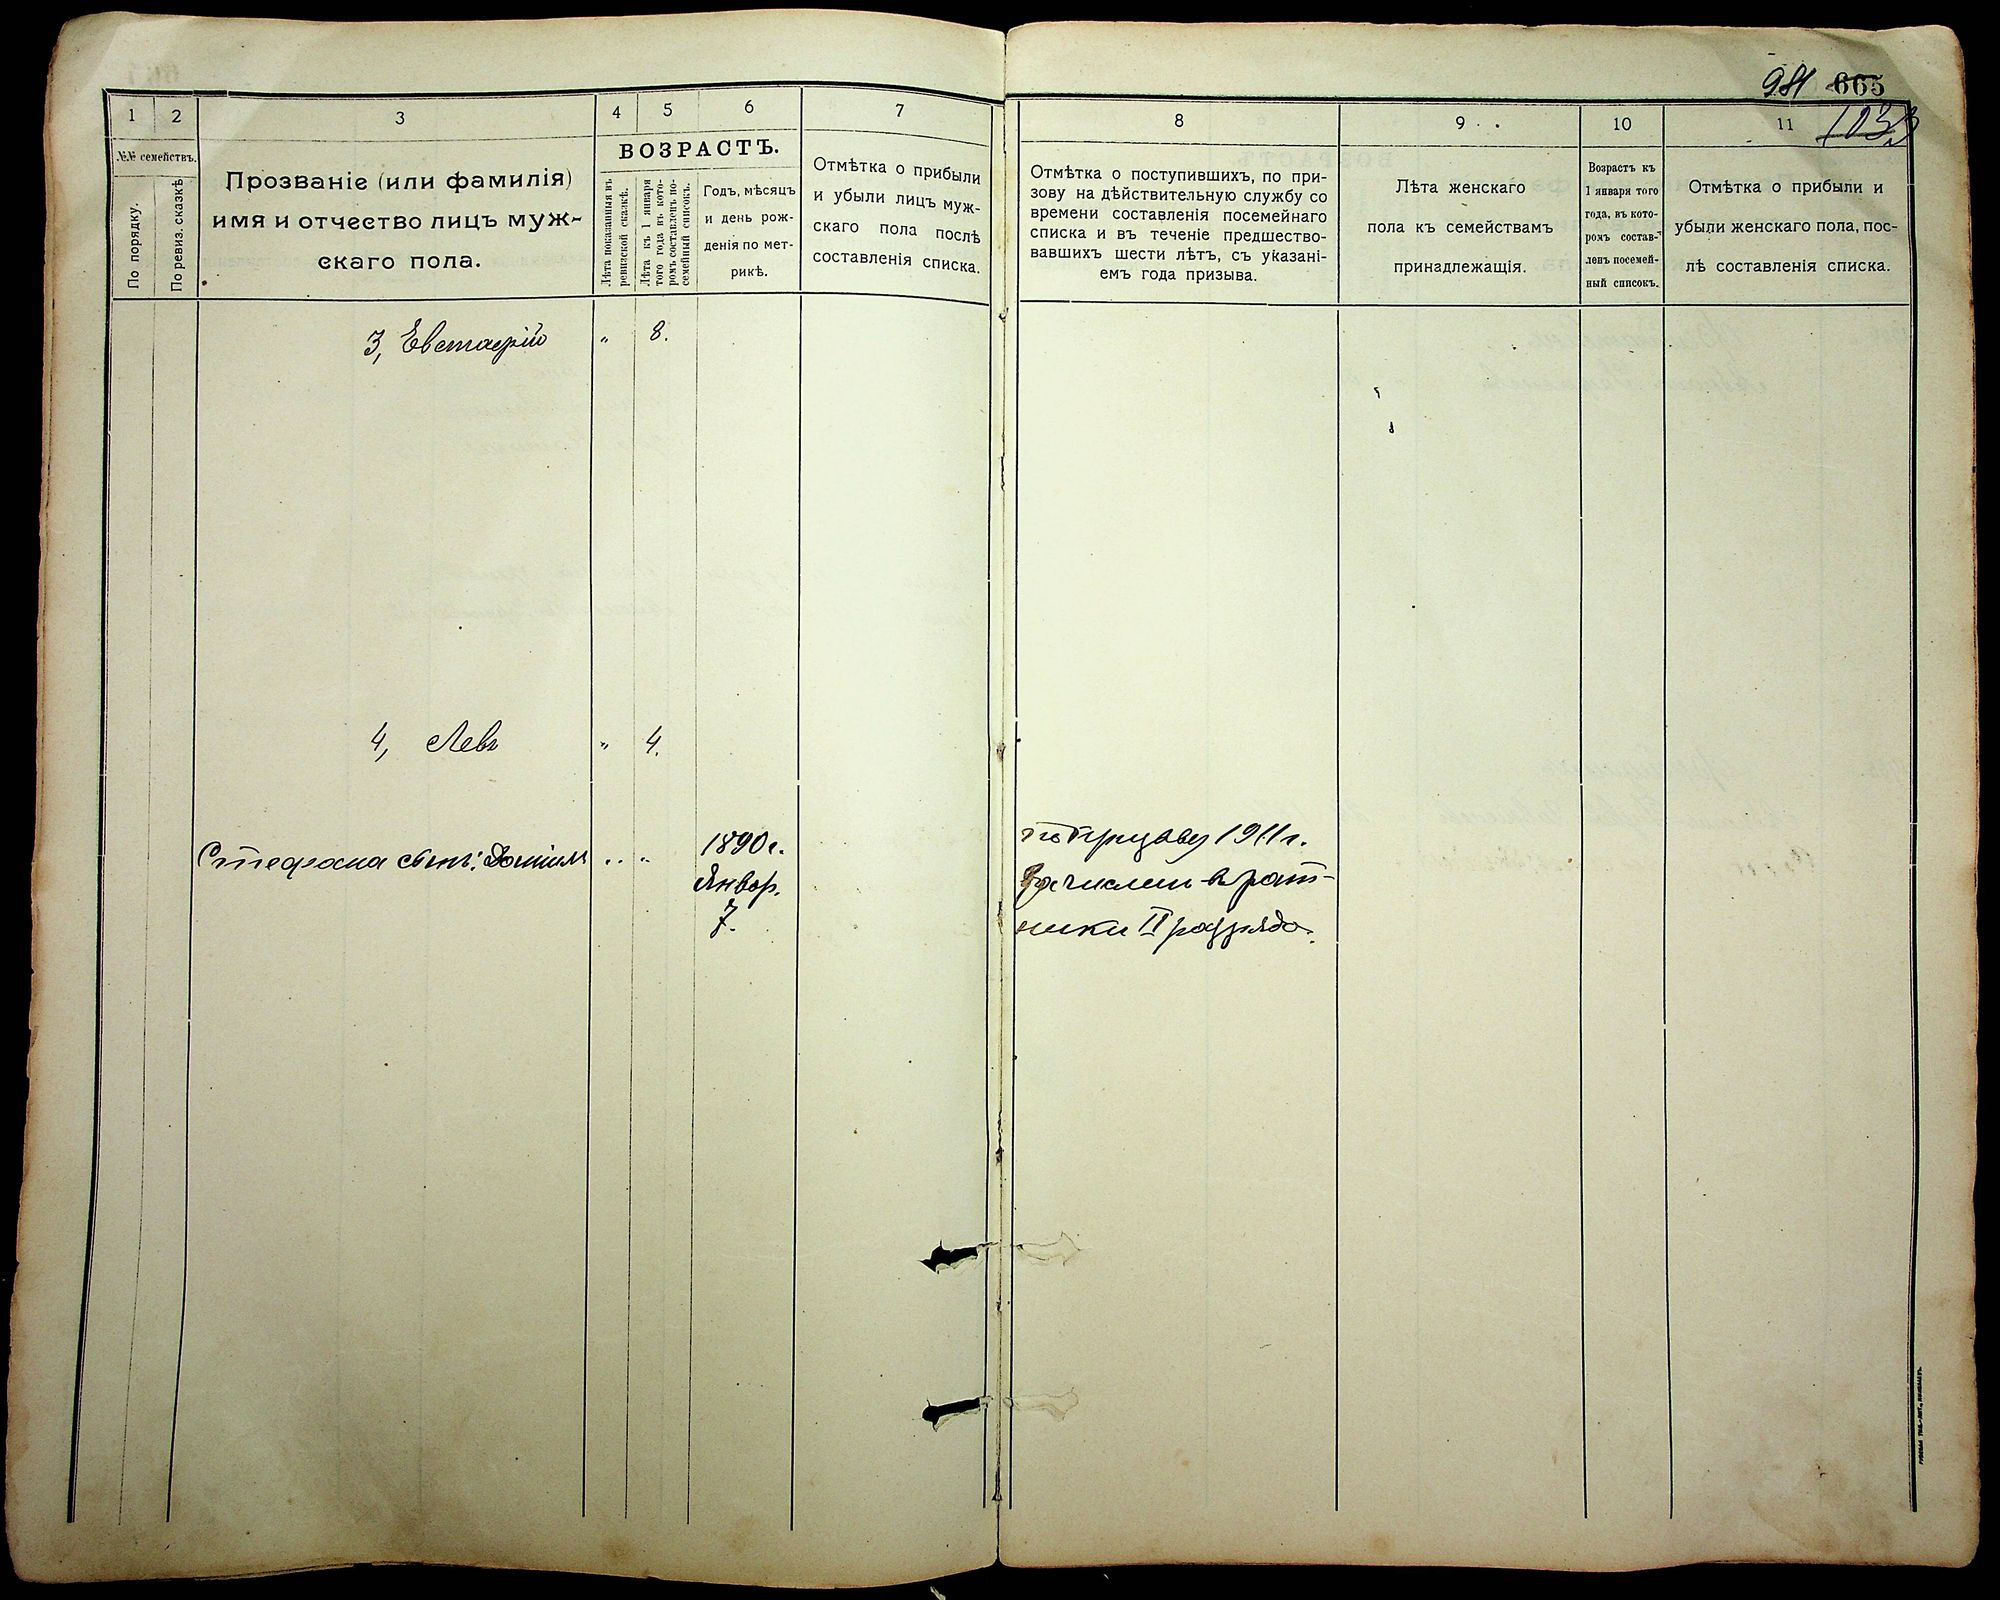 981 665
1033
1
2
3
4
5
6
7
№№ семействъ.
По порядку.
По ревиз. сказкѣ
Прозваніе (или фамилія)
имя и отчество лицъ муж-
скаго пола.
ВОЗРАСТЪ.
Лѣта показанныя въ
ревизской сказкѣ.
Лѣта къ 1 января
того года въ кото-
ромъ составленъ по-
семейный списокъ.
Годъ, мѣсяцъ
и день рож-
денія по мет-
рикѣ.
Отмѣтка о прибыли
и убыли лицъ муж-
скаго пола послѣ
составленія списка.
8
9
10
11
Отмѣтка о поступившихъ, по при-
зову на дѣйствительную службу со
времени составленія посемейнаго
списка и въ теченіе предшество-
вавшихъ шести лѣтъ, съ указані-
емъ года призыва.
Лѣта женскаго
пола къ семействамъ
принадлежащія.
Возрастъ къ
1 января того
года, въ кото-
ромъ состав-
ленъ посемей-
ный списокъ.
Отмѣтка о прибыли и
убыли женскаго пола, пос-
лѣ составленія списка.
3, Евстафій " 8.
4, Левъ " 4.
Стефана сынъ: Даніилъ " "
1890 г.
Январ.
7.
по призыву 1911 г.
зачислен в рат-
ники II разряда.